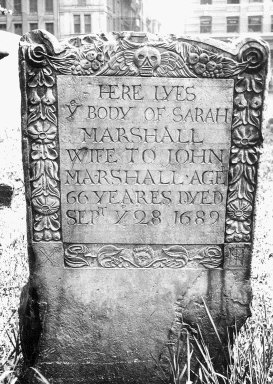 HERE LYES
Yᵉ BODY OF SARAH
MARSHALL
WIFE TO IOHN
MARSHALL·AGE
66 YEARES DYED
SEPᵗ Yᵉ 28 1689